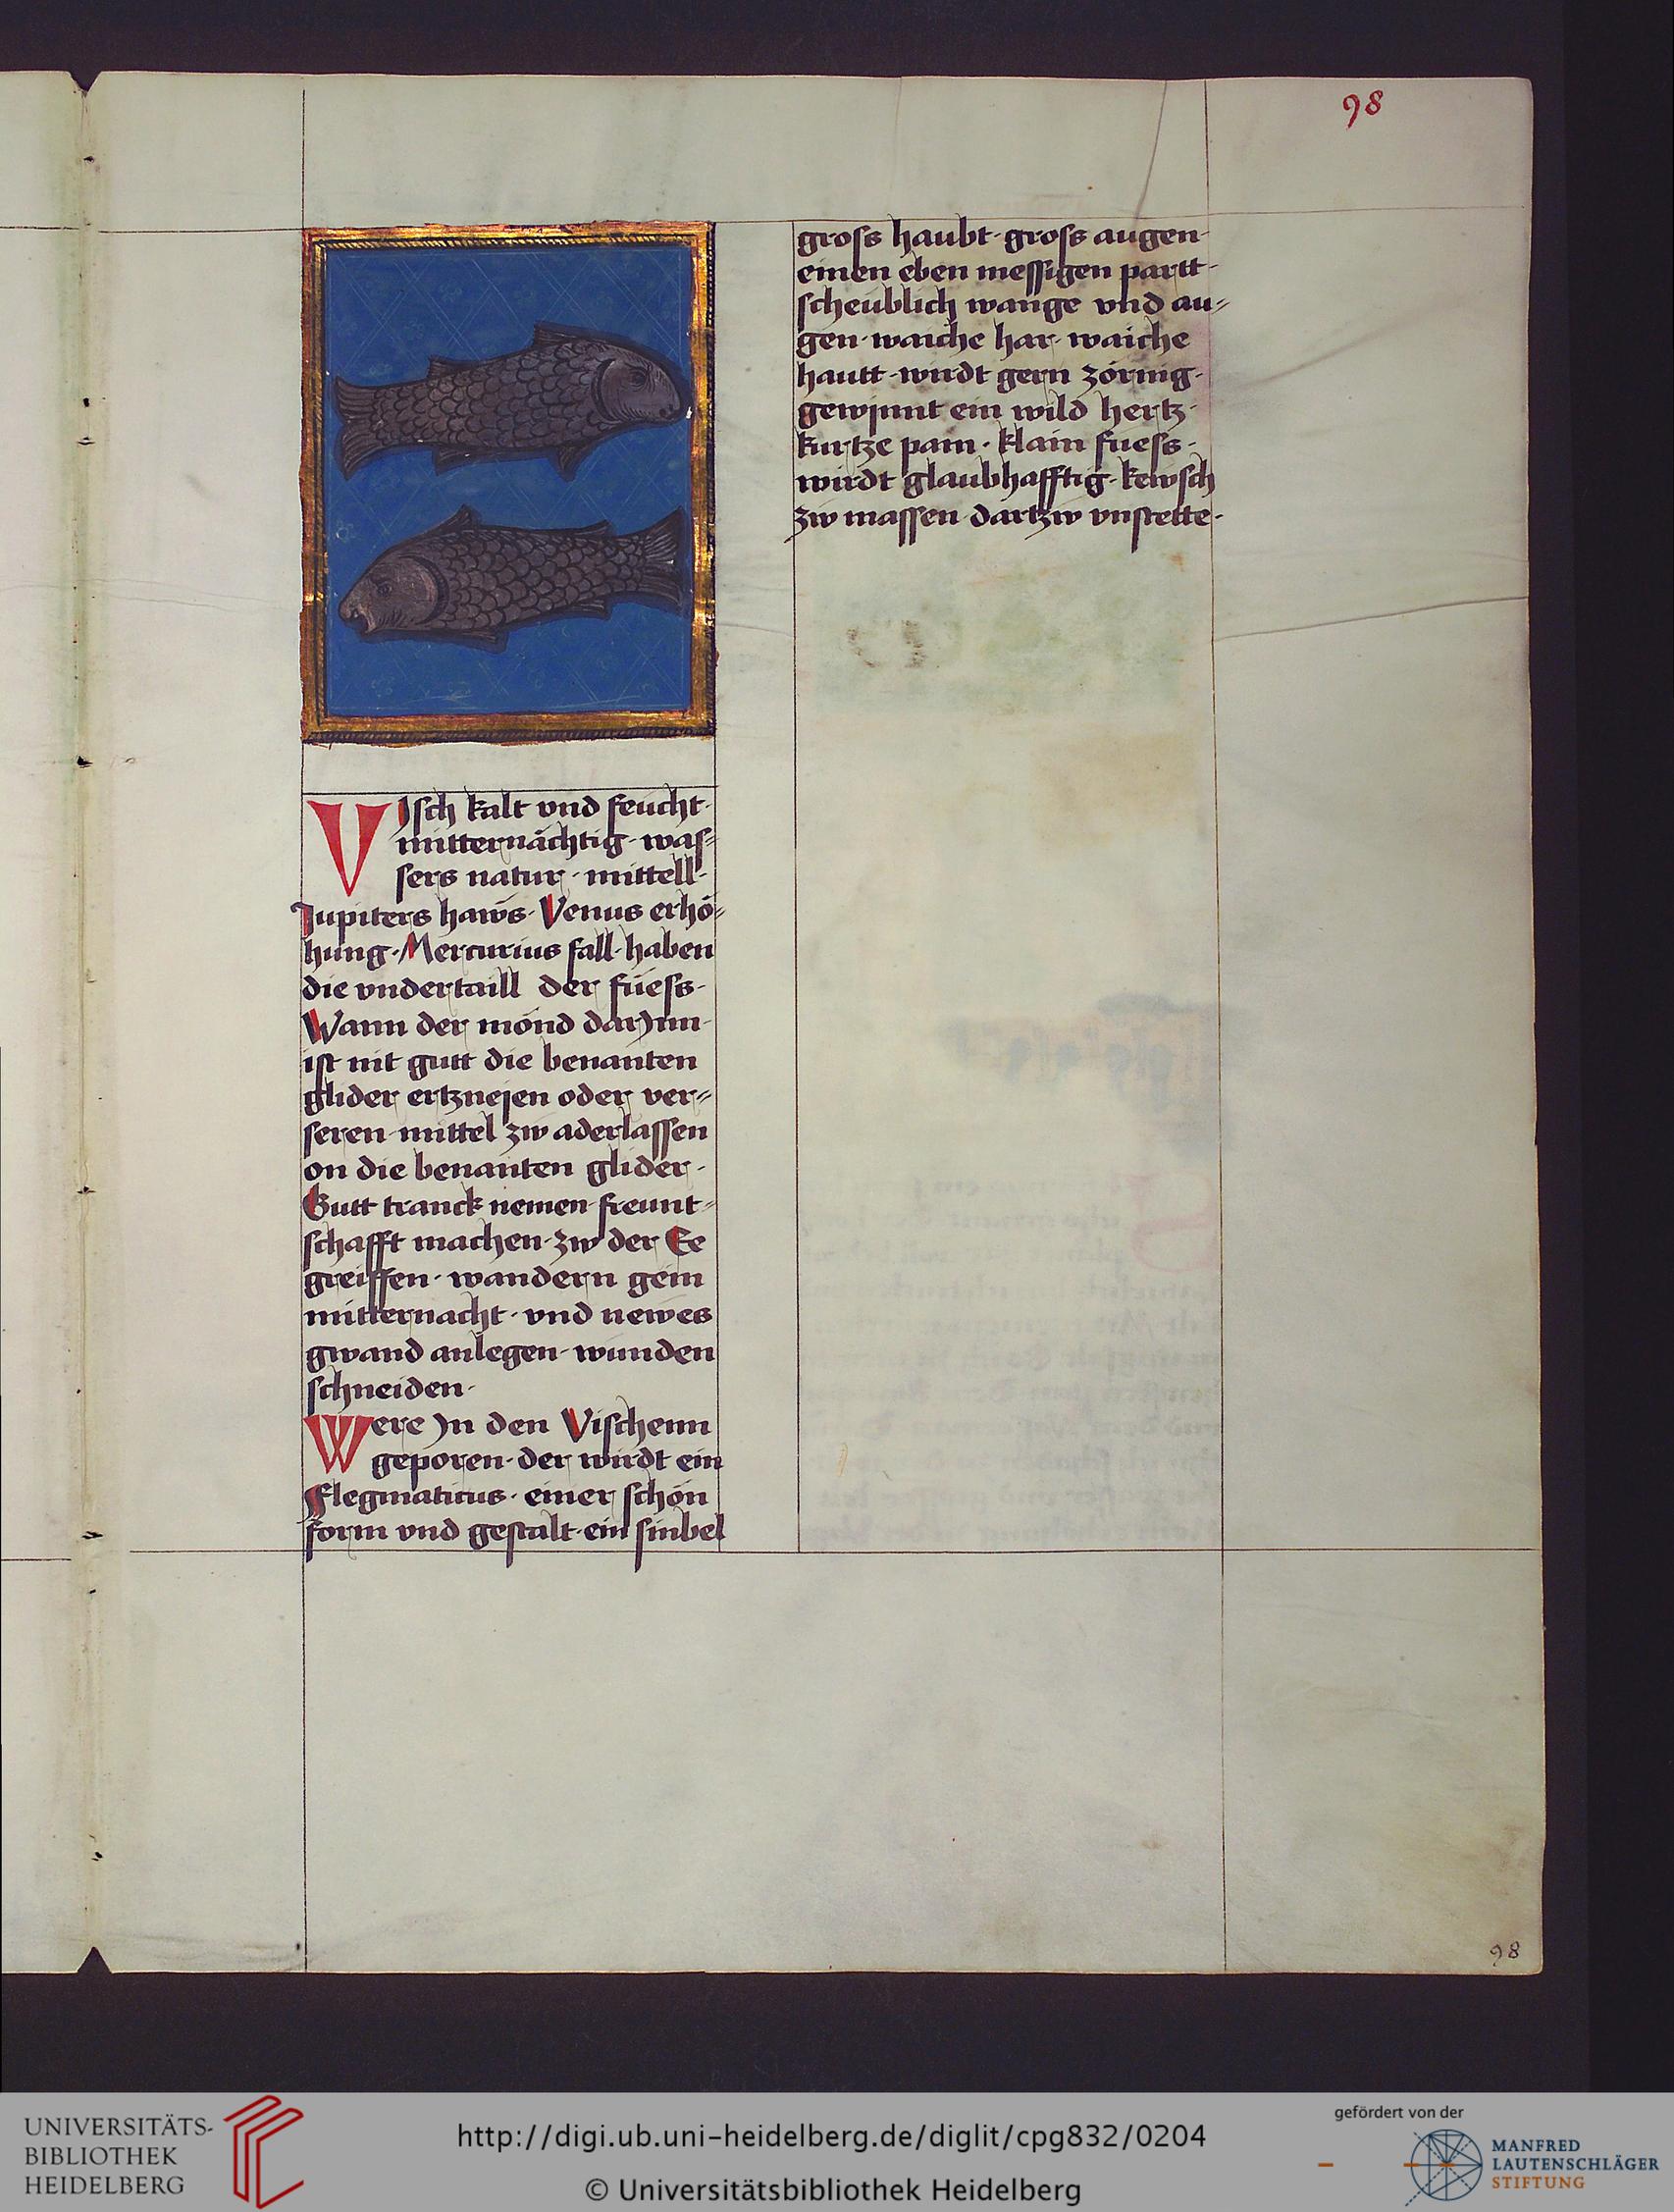 98
Visch kalt vnd feücht·
mitternåchtig· was⸗
sers natur· mittell·
Jupiters haẅs· Venus erhö⸗
hung· Mercurius fall· haben
die vndertaill der füess·
Wann der mond darJnn·
ist nit gutt die benanten
glider ertzneyen oder ver⸗
seren· mittel zw aderlassen
on die benanten glider·
Gutt tranck nemen· freunt⸗
schafft machen· zw der Ee
greiffen· wandern gein
mitternacht· vnd newes
gwand anlegen· wunden
schneiden·
Were Jn den Vischenn
geporen· der wirdt ein
Flegmaticus· einer schön
form vnd gestalt· ein sinbel
gross haubt· gross augen·
einen eben messigen partt·
scheüblich wange vnd au⸗
gen· waiche har· waiche
hautt· wirdt gern zörnig·
gewynnt ein wild hertz·
kurtze pain· klain fuess·
wirdt glaubhafftig· kewsch
zw massen· dartzw vnstette·
98
UNIVERSITÄTS-
BIBLIOTHEK
HEIDELBERG
http://digi.ub.uni-heidelberg.de/diglit/cpg832/0204
© Universitätsbibliothek Heidelberg
gefördert von der
MANFRED
LAUTENSCHLÄGER
STIFTUNG